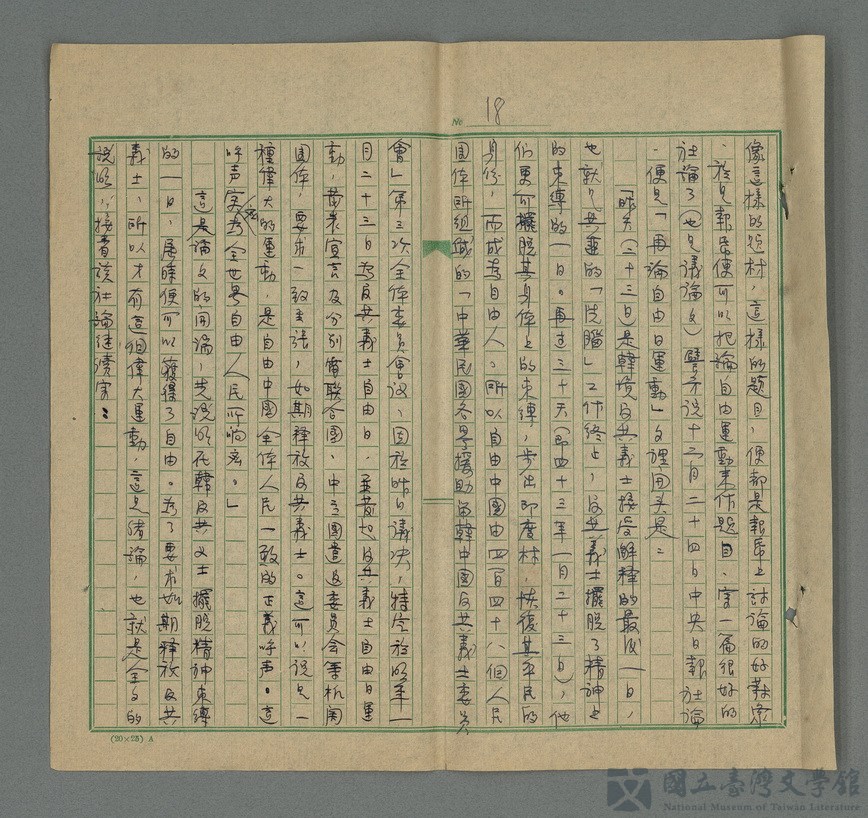 № 18
像這樣的題材，這樣的題目，便都是報紙上討論的好對象
，於是報紙便可以把論自由運動來作題目，寫一篇很好的
社論了（也是議論文）譬方說十二月二十四日中央日報社論
，便是「再論自由日運動」文裡開头是：
「昨天（二十三日）是韓境反共義士接受解釋的最後一日，
也就是共匪的「洗腦」工作終止，反共義士擺脫了精神上
的束縛的一日。再过三十天（即四十三年一月二十三日），他
们更可擺脫其身体上的束縛，步出印度村，恢復其平民的
身份，而成為自由人。所以自由中國由四百四十八個人民
團体所組成的「中華民國各界援助留韓中國反共義士委員
會」第三次全体委員會议，因於昨日議决，特定於明年一
月二十三日為反共義士自由日，並發起反共義士自由日運
動，發表宣言及分別電联合國、中立國遣返委員会等机関
團体，要求一致主張，如期釋放反共義士。這可以說是一
種偉大的運動，是自由中國全体人民一致的正義呼声。這
呼声实為全世界自由人民所响应。」
這是論文的開端，先說明在韓反共义士擺脫精神束縛
的一日，屆時便可以獲得了自由。為了要求如期釋放反共
義士，所以才有這個偉大運動，這是緒論，也就是全文的
說明，接着該社論继續寫：
(20×25) A
國立臺灣文學館
National Museum of Taiwan Literature